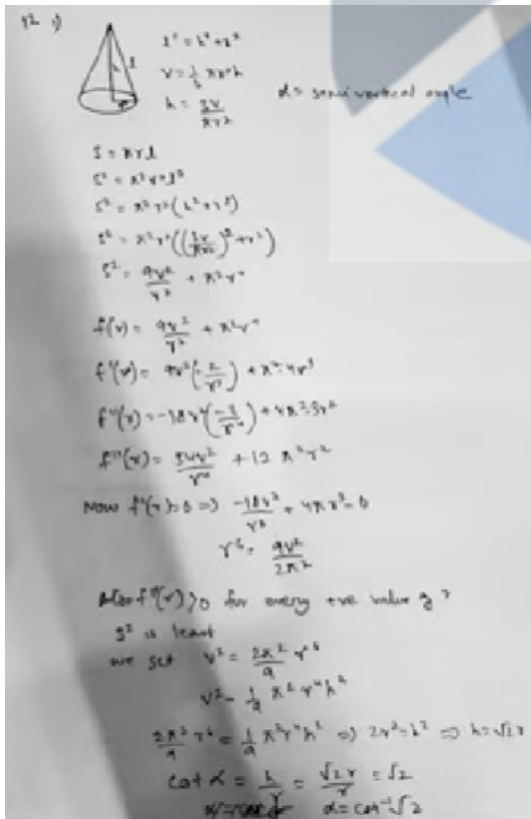 12 i)
l² = h² + r²
V = 1/3 πr²h
h = 3V/πr²
α = semi vertical angle
S = πrl
S² = π²r²l²
S² = π²r²(h² + r²)
S² = π²r²((3V/πr²)² + r²)
S² = 9V²/r² + π²r⁴
f(r) = 9V²/r² + π²r⁴
f'(r) = 9V²(-2/r³) + π²·4r³
f''(r) = -18V²(-3/r⁴) + 4π²·3r²
f''(r) = 54V²/r⁴ + 12 π²r²
Now f'(r) = 0 => -18V²/r³ + 4πr³ = 0
r⁶ = 9V²/2π²
Also f''(r) > 0 for every +ve value of r
S² is least
we get V² = 2π²/9 r⁶
V² = 1/9 π²r⁴h²
2π²/9 r⁶ = 1/9 π²r⁴h² => 2r² = h² => h = √2 r
cot α = h/r = √2r/r = √2
α = cot⁻¹√2